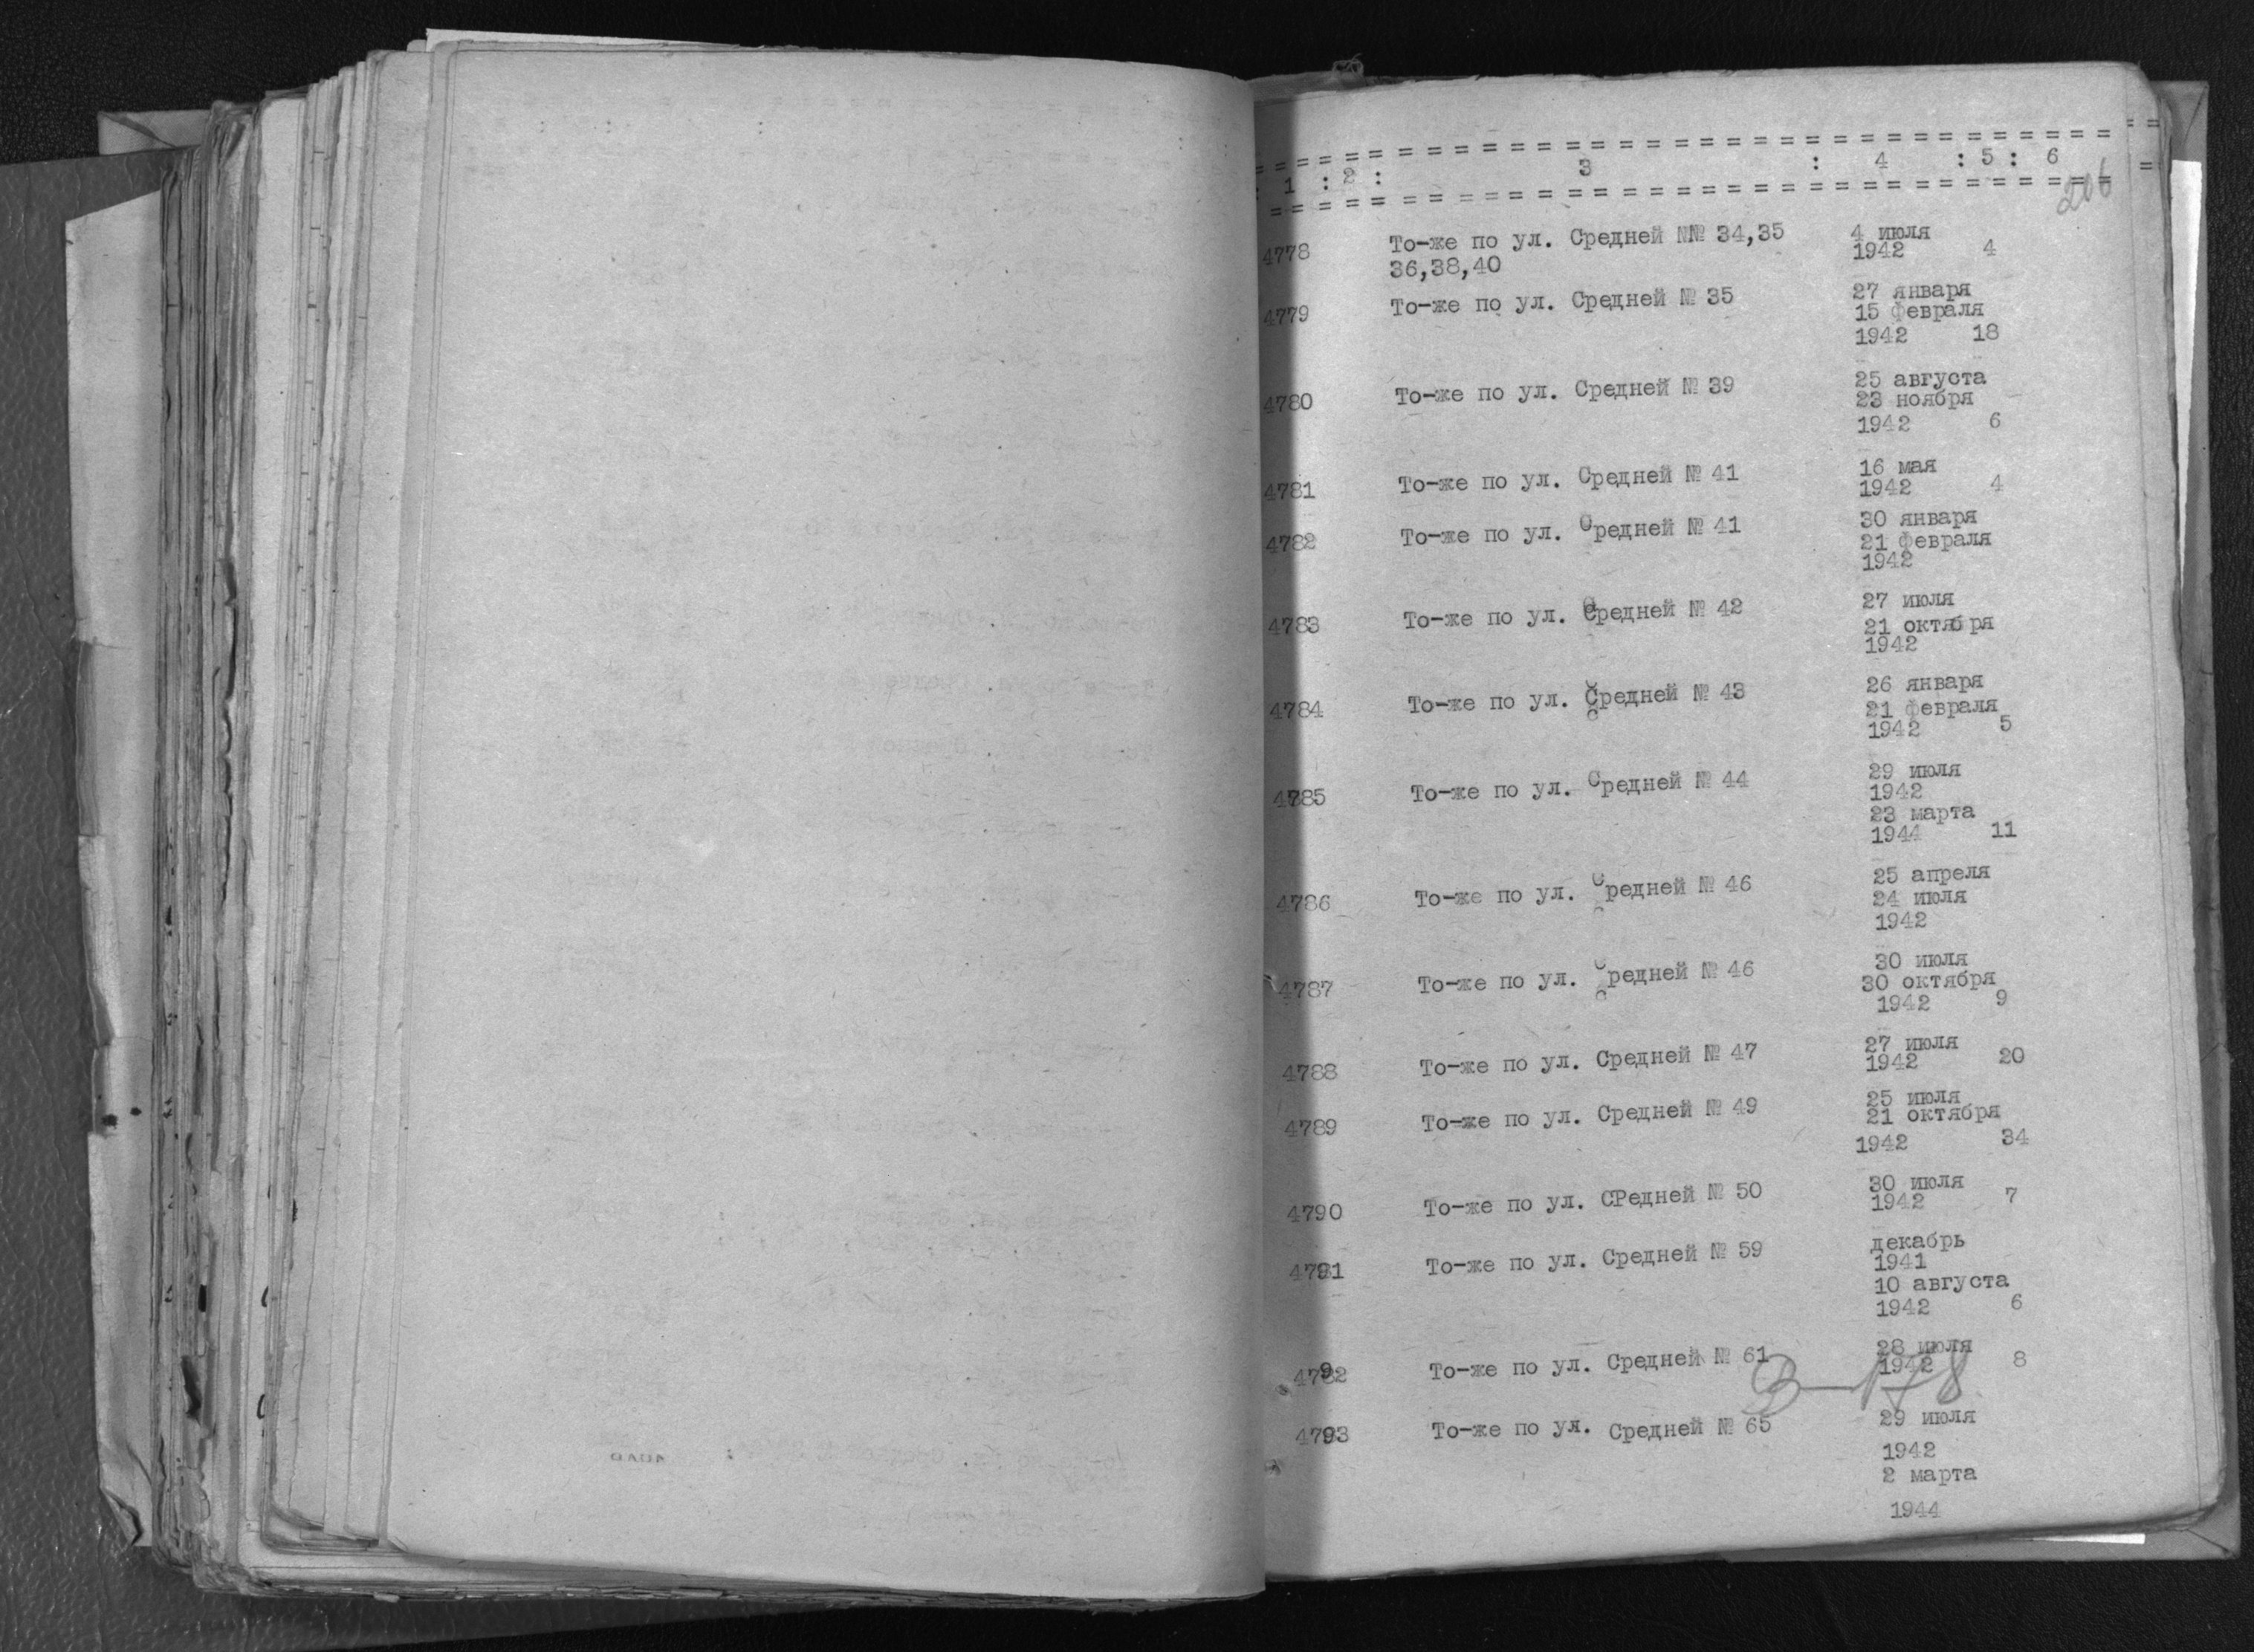 = = = = = = = = = = = = = = = = = = = = = = = = = = = = = = = =
: 1 : 2 : 3 : 4 : 5 : 6
= = = = = = = = = = = = = = = = = = = = = = = = = = = = = = = =
206
4778 То-же по ул. Средней №№ 34,35 4 июля
36,38,40 1942 4
4779 То-же по ул. Средней № 35 27 января
15 февраля
1942 18
4780 То-же по ул. Средней № 39 25 августа
23 ноября
1942 6
4781 То-же по ул. Средней № 41 16 мая
1942 4
4782 То-же по ул. Средней № 41 30 января
21 февраля
1942
4783 То-же по ул. Средней № 42 27 июля
21 октября
1942
4784 То-же по ул. Средней № 43 26 января
21 февраля
1942 5
4785 То-же по ул. Средней № 44 29 июля
1942
23 марта
1944 11
4786 То-же по ул. Средней № 46 25 апреля
24 июля
1942
4787 То-же по ул. Средней № 46 30 июля
30 октября
1942 9
4788 То-же по ул. Средней № 47 27 июля
1942 20
4789 То-же по ул. Средней № 49 25 июля
21 октября
1942 34
4790 То-же по ул. СРедней № 50 30 июля
1942 7
4791 То-же по ул. Средней № 59 декабрь
1941
10 августа
1942 6
4792 То-же по ул. Средней № 61 28 июля
1942 8
4793 То-же по ул. Средней № 65 29 июля
1942
2 марта
1944